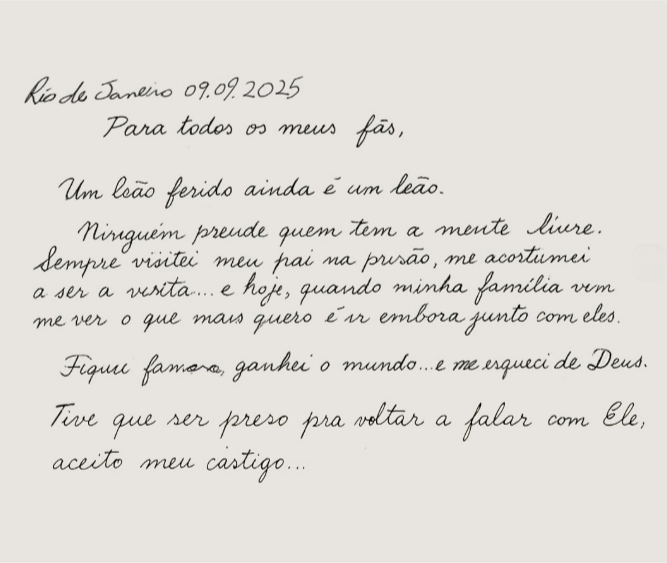 Rio de Janeiro 09.09.2025
Para todos os meus fãs,
Um leão ferido ainda é um leão.
Ninguém prende quem tem a mente livre.
Sempre visitei meu pai na prisão, me acostumei
a ser a visita... e hoje, quando minha família vem
me ver o que mais quero é ir embora junto com eles.
Fiquei famoso, ganhei o mundo... e me esqueci de Deus.
Tive que ser preso pra voltar a falar com Ele,
aceito meu castigo...